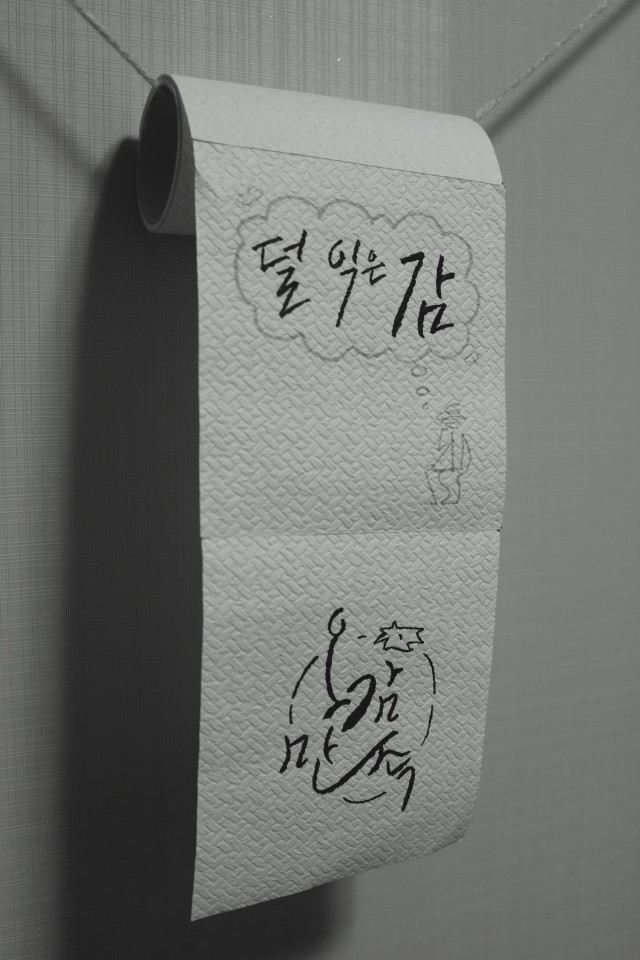 덜 익은 감
오감
만족